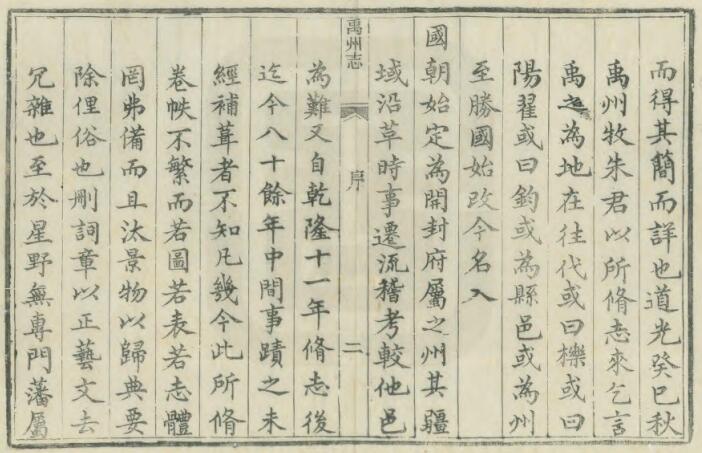 而得其簡而詳也道光癸巳秋
禹州牧朱君以所脩志來乞言
禹之為地在往代或曰櫟或曰
陽翟或曰鈞或為縣邑或為州
至勝國始改今名入
國朝始定為開封府屬之州其疆
域沿革時事遷流稽考較他邑
禹州志
序
二
為難又自乾隆十一年脩志後
迄今八十餘年中間事蹟之未
經補葺者不知凡幾今此所脩
卷帙不繁而若圖若表若志體
罔弗備而且汰景物以歸典要
除俚俗也刪詞章以正藝文去
冗雜也至於星野無專門藩屬